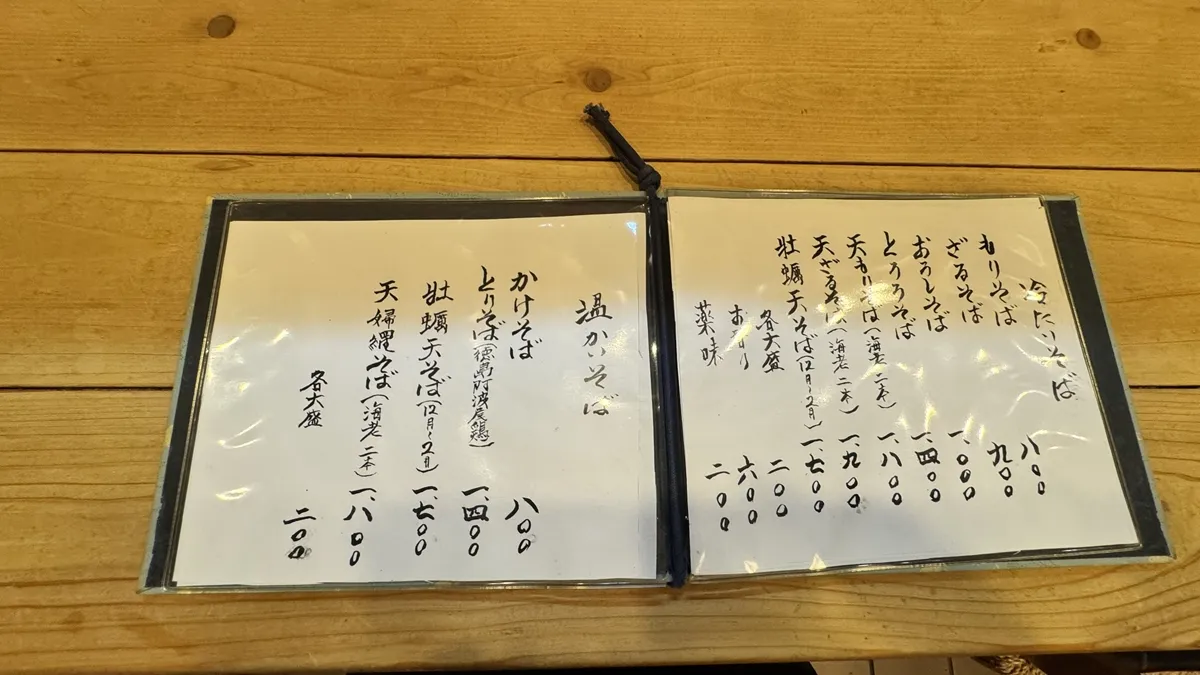 冷たいそば
もりそば 八〇〇
ざるそば 九〇〇
おろしそば 一、〇〇〇
とろろそば 一、四〇〇
天もりそば(海老二本) 一、八〇〇
天ざるそば(海老二本) 一、九〇〇
牡蠣天そば(12月〜2月) 一、七〇〇
各大盛 二〇〇
六〇〇
薬味 二〇〇
温かいそば
かけそば 八〇〇
とりそば(徳島阿波尾鶏) 一、四〇〇
牡蠣天そば(12月〜2月) 一、七〇〇
天婦羅そば(海老二本) 一、八〇〇
各大盛 二〇〇